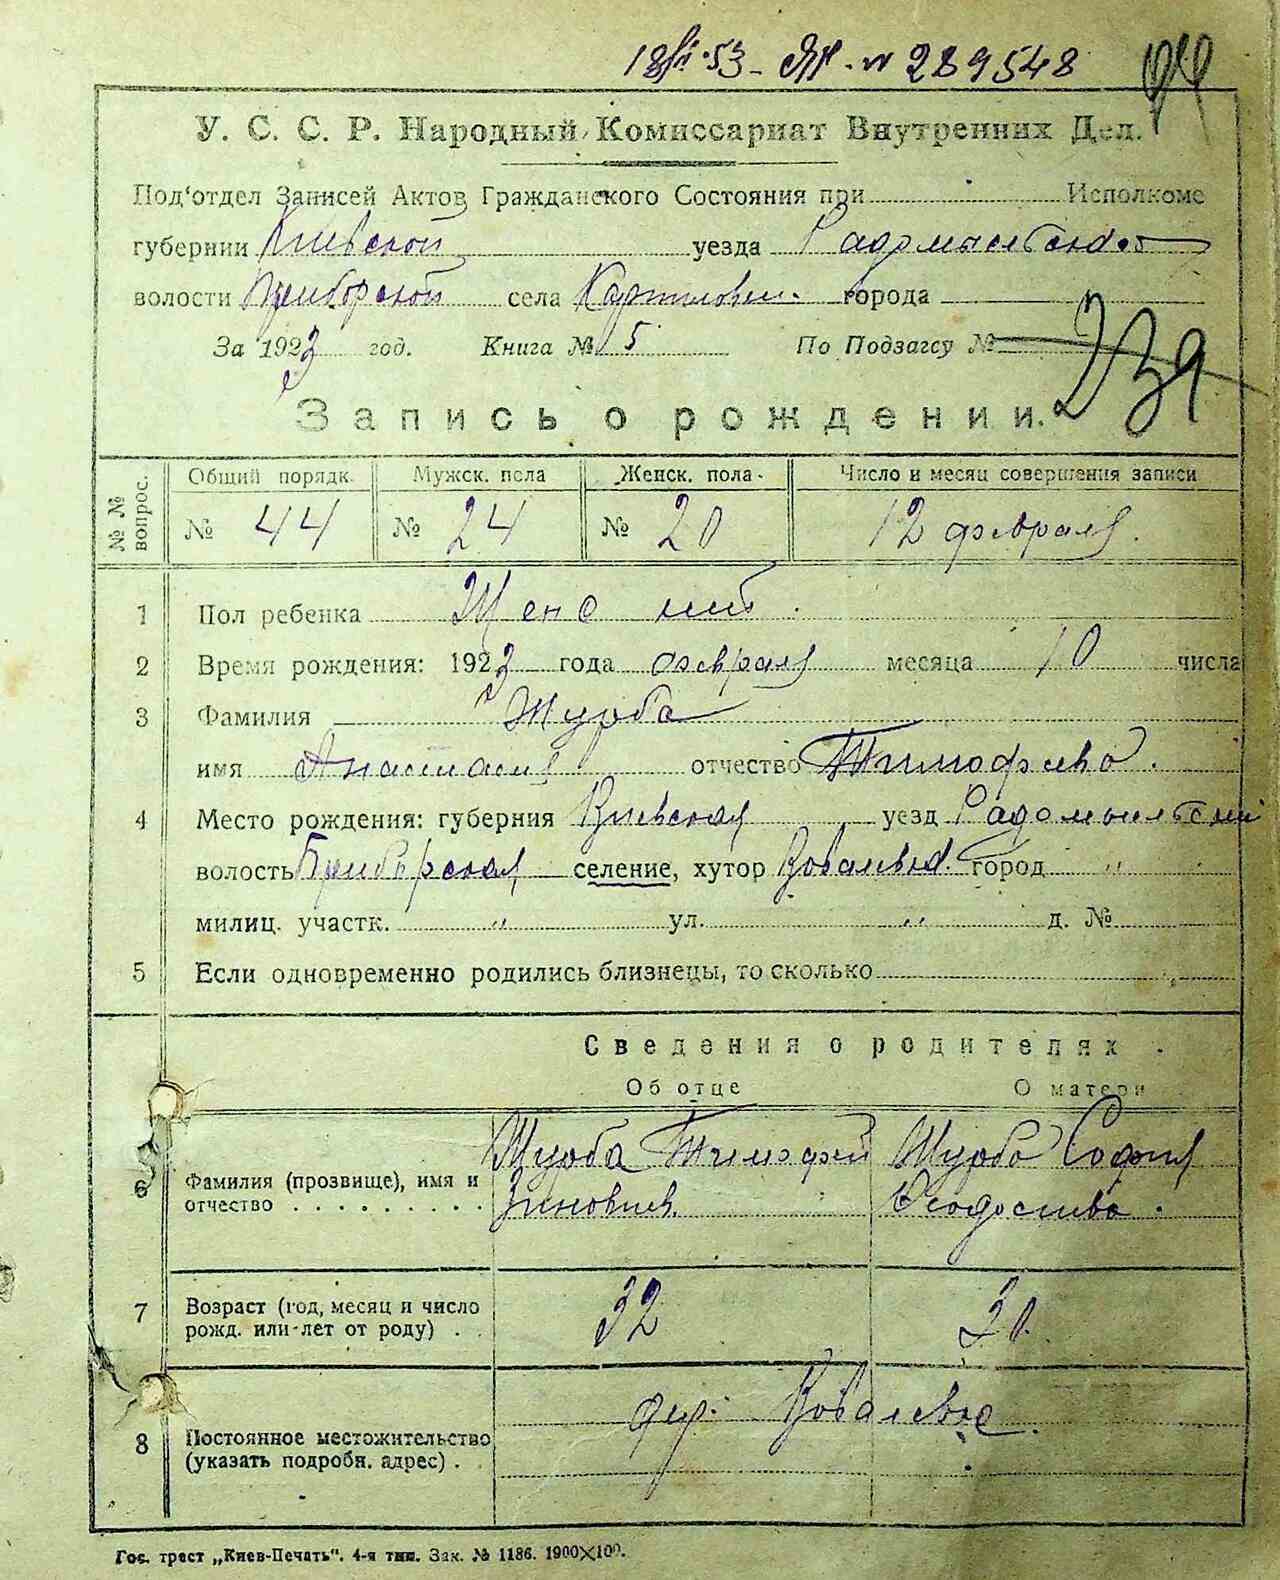 289548
У. С. С. Р. Народный Комиссариат Внутренних Дел.
Под'отдел Записей Актов Гражданского Состояния при Исполкоме
губернии Киевской уезда Радомысльского
волости села города
За 1923 год. Книга № 5 По Подзагсу №
239
Запись о рождении.
№ № вопрос. Общий порядк. Мужск. пола Женск. пола Число и месяц совершения записи
№ 44 № 24 № 20 12 февраля.
1 Пол ребенка Женский.
2 Время рождения: 1923 года февраля месяца 10 числа
3 Фамилия Журба
имя Анастасия отчество Тимофеева.
4 Место рождения: губерния Киевская уезд Радомысльский
волость селение, хутор город "
милиц. участк. " ул. " д. №
5 Если одновременно родились близнецы, то сколько
Сведения о родителях.
Об отце О матери
6 Фамилия (прозвище), имя и отчество . . . . . . . . . Журба Тимофей Зиновиев. Журба София Феодосиева.
7 Возраст (год, месяц и число рожд. или лет от роду) . . 32 30.
8 Постоянное местожительство (указать подробн. адрес) . дер.
Гос. трест „Киев-Печать". 4-я тип. Зак. № 1186. 1900×100.